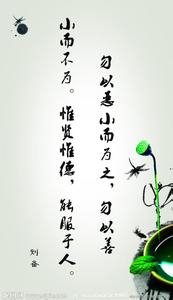 勿以恶小而为之，勿以善
小而不为。惟贤惟德，能服于人。
刘备